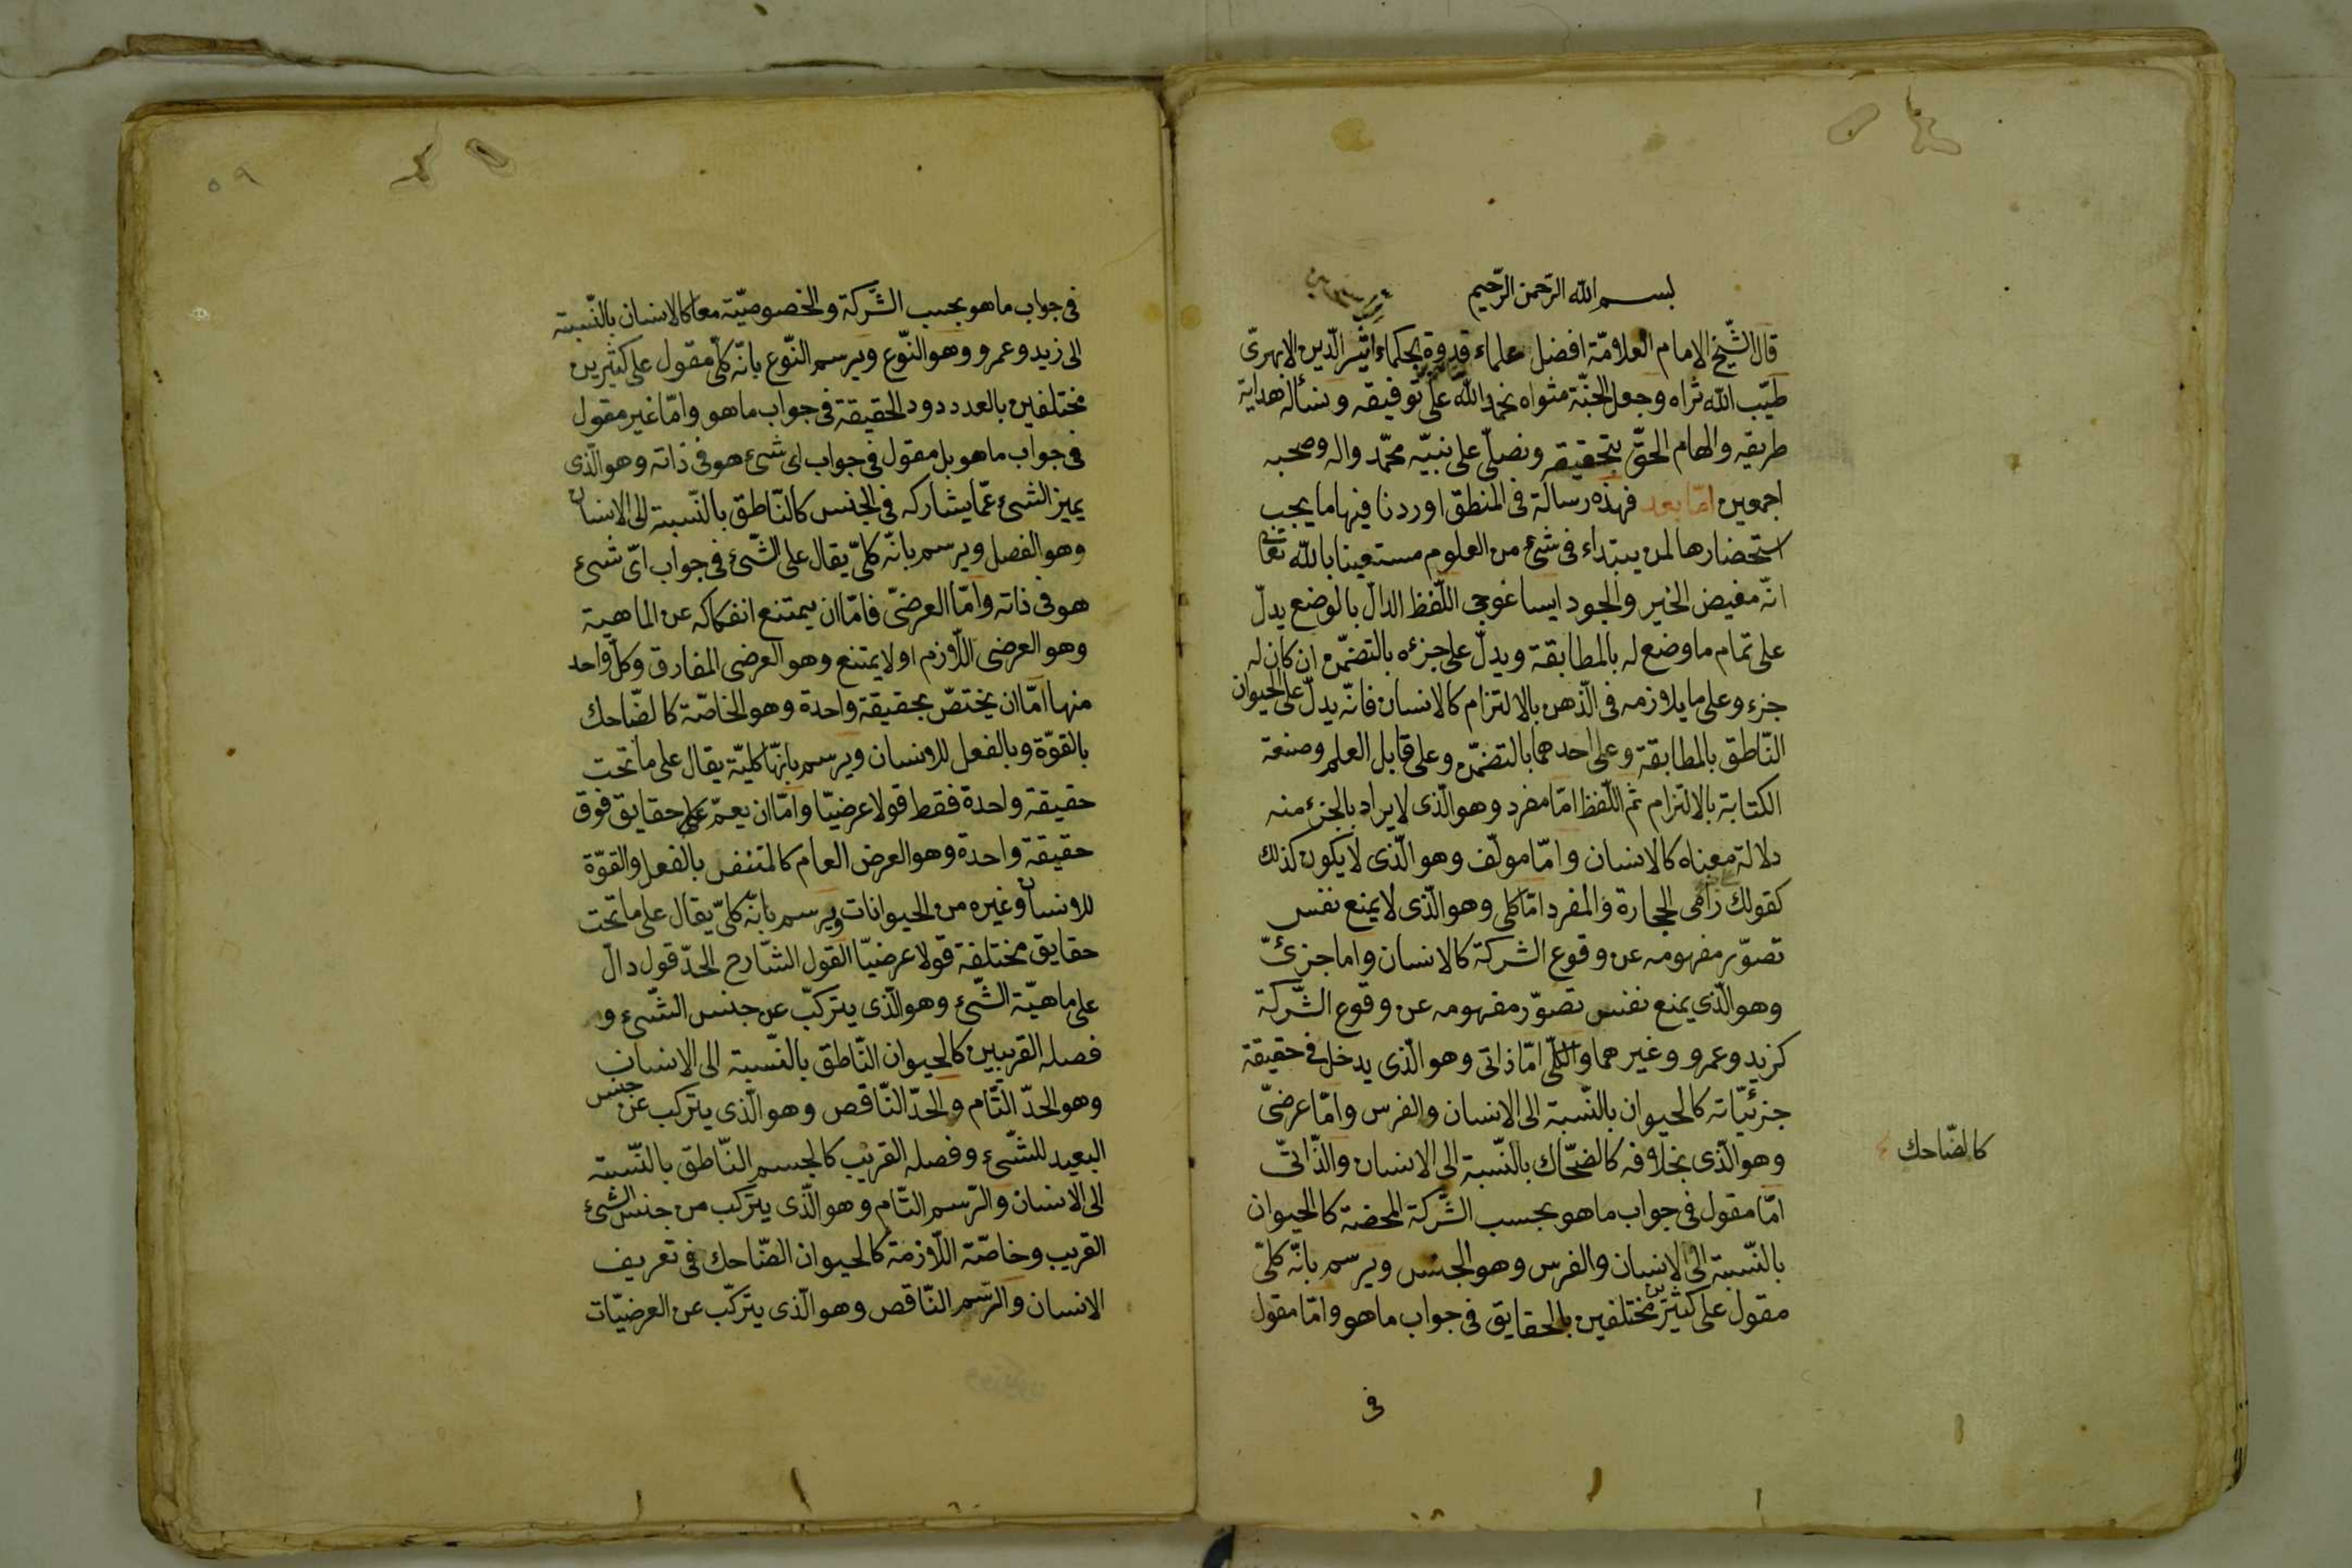 بسم الله الرّحمن الرّحيم
قال الشّيخ الامام العلامّة افضل علماء قدوة الحكماء اثير الدّين الابهرىّ
طيّب الله ثراه وجعل الجنّة مثواه نحمد الله على توفيقه ونسأله هداية
طريقه والهام الحقّ بتحقيقه ونصلّى على نبيّه محمّد واله وصحبه
اجمعين امّا بعد فهذه رسالة فى المنطق اوردنا فيها ما يجب
استحضارها لمن يبتداء فى شئ من العلوم مستعينا بالله تعالى
انّه مفيض الخير والجود ايساغوجى اللّفظ الدالّ بالوضع يدلّ
على تمام ما وضع له بالمطابقة ويدلّ على جزءه بالتضمّن ان كان له
جزء وعلى ما يلازمه فى الذّهن بالالتزام كالانسان فانّه يدلّ على الحيوان
النّاطق بالمطابقة وعلى احدهما بالتضمّن وعلى قابل العلم وصنعة
الكتابة بالالتزام ثم اللّفظ امّا مفرد وهو الّذى لا يراد بالجزء منه
دلالة معناه كالانسان وامّا مولّف وهو الّذى لا يكون كذلك
كقولك رامى الحجارة والمفرد امّا كلى وهو الّذى لا يمنع نفس
تصوّر مفهومه عن وقوع الشركة كالانسان واما جزئىّ
وهو الّذى يمنع نفس تصوّر مفهومه عن وقوع الشّركة
كزيد وعمرو وغيرهما والكلّى امّا ذاتى وهو الّذى يدخل فى حقيقة
جزئيّاته كالحيوان بالنّسبة الى الانسان والفرس وامّا عرضىّ
وهو الّذى بخلافه كالضحّاك بالنّسبة الى الانسان والذّاتىّ
كالضّاحك
امّا مقول فى جواب ما هو بحسب الشّركة المحضة كالحيوان
بالنّسبة الى الانسان والفرس وهو الجنس ويرسم بانّه كلىّ
مقول على كثيرين مختلفين بالحقايق فى جواب ما هو وامّا مقول
فى
٥٩
فى جواب ما هو بحسب الشّركة والخصوصيّة معا كالانسان بالنّسبة
الى زيد وعمرو وهو النّوع ويرسم النّوع بانّه كلّى مقول على كثيرين
مختلفين بالعدد دون الحقيقة فى جواب ما هو وامّا غير مقول
فى جواب ما هو بل مقول فى جواب اى شئ هو فى ذاته وهو الّذى
يميز الشئ عمّا يشاركه فى الجنس كالنّاطق بالنّسبة الى الانسان
وهو الفصل ويرسم بانّه كلىّ يقال على الشّئ فى جواب اىّ شئ
هو فى ذاته وامّا العرضىّ فامّا ان يمتنع انفكاكه عن الماهية
وهو العرضى اللّازم او لا يمتنع وهو العرضى المفارق وكلّ واحد
منها امّا ان يختصّ بحقيقة واحدة وهو الخاصّة كالضّاحك
بالقوّة وبالفعل للانسان ويرسم بانّها كليّة يقال على ما تحت
حقيقة واحدة فقط قولا عرضيّا وامّا ان يعمّ على حقايق فوق
حقيقة واحدة وهو العرض العام كالمتنفس بالفعل والقوّة
للانسان وغيره من الحيوانات ويرسم بانّه كلىّ يقال على ما تحت
حقايق مختلفة قولا عرضيّا القول الشّارح الحدّ قول دالّ
على ماهيّة الشّئ وهو الّذى يتركّب عن جنس الشّئ و
فصله القريبين كالحيوان النّاطق بالنّسبة الى الانسان
وهو الحدّ التّام والحدّ النّاقص وهو الّذى يتركب عن جنس
البعيد للشّئ وفصله القريب كالجسم النّاطق بالنّسبة
الى الانسان والرّسم التّام وهو الّذى يتركب من جنس الشئ
القريب وخاصّة اللّازمة كالحيوان الضّاحك فى تعريف
الانسان والرّسم النّاقص وهو الّذى يتركّب عن العرضيّات